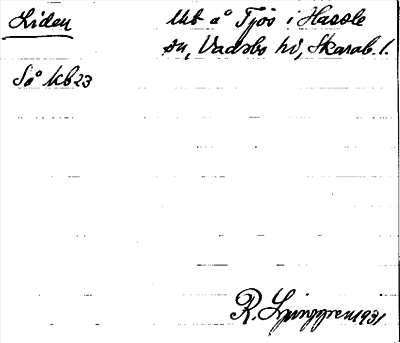 Liden
Ub å Tjös i Hassle
sn, Vadsbo hd, Skarab. l.
Sö Ub 23
R. Ljunggren 1931